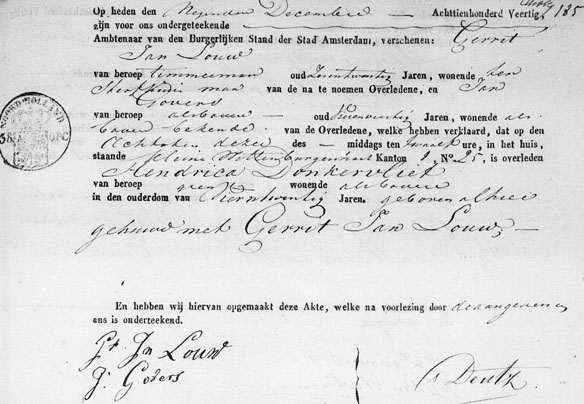 Op heden den Negenden December Achttienhonderd Veertig, 185
zijn voor ons ondergeteekende
Ambtenaar van den Burgerlijken Stand der Stad Amsterdam, verschenen: Gerrit
Jan Louw
van beroep timmerman oud Jaren, wonende ten
Sterfhuize man van de na te noemen Overledene, en Jan
Govers
van beroep als boven oud Jaren, wonende als
boven bekende van de Overledene, welke hebben verklaard, dat op den
Achtsten dezer des — middags ten twaalf ure, in het huis,
staande kleine Wittenburgerstraat Kanton 2, No. 25, is overleden
Hendrica Donkervliet
van beroep geen wonende als boven
in den ouderdom van Jaren. geboren alhier
gehuwd met Gerrit Jan Louw, —
En hebben wij hiervan opgemaakt deze Akte, welke na voorlezing door de aangevers en
ons is onderteekend.
Gt Jn Louw
J. Govers
Deutz
NOORD-HOLLAND